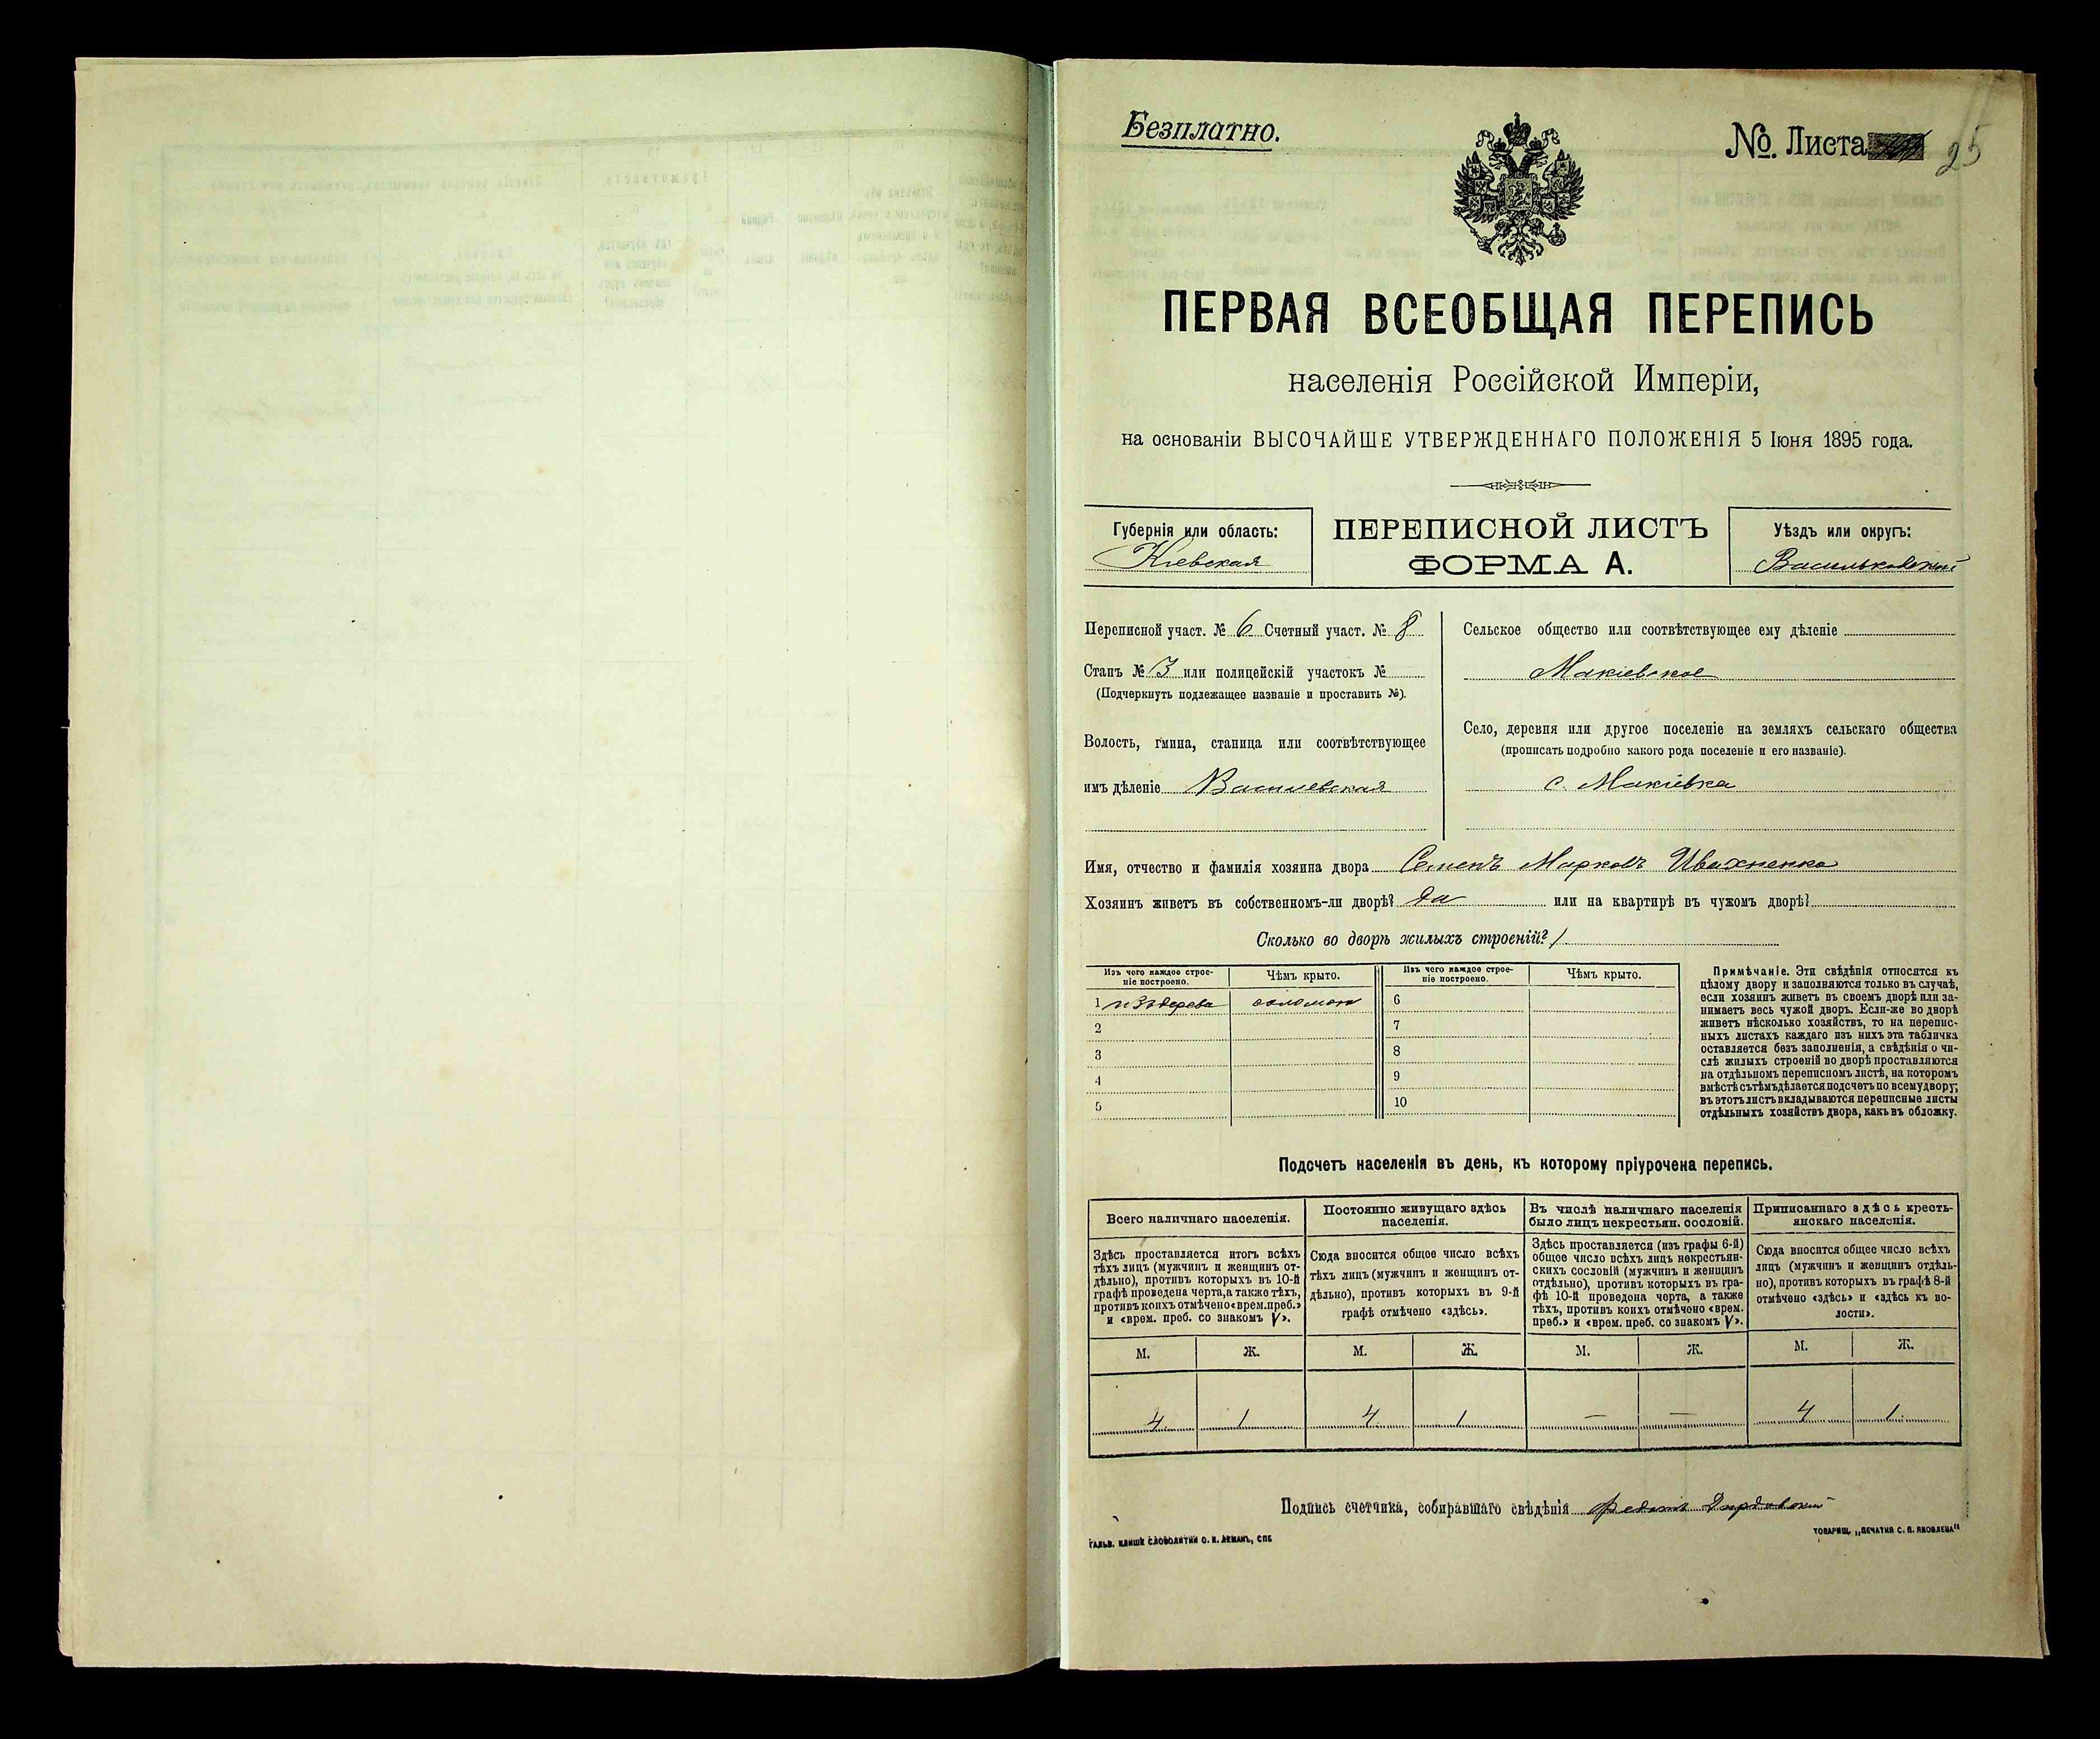 Безплатно.
№. Листа 25
ПЕРВАЯ ВСЕОБЩАЯ ПЕРЕПИСЬ
населенія Россійской Имперіи,
на основаніи ВЫСОЧАЙШЕ УТВЕРЖДЕННАГО ПОЛОЖЕНІЯ 5 Іюня 1895 года.
Губернія или область:
Кіевская
ПЕРЕПИСНОЙ ЛИСТЪ
ФОРМА А.
Уѣздъ или округъ:
Васильковскій
Переписной участ. № 6 Счетный участ. № 8
Станъ № 3 или полицейскій участокъ №
(Подчеркнуть подлежащее названіе и проставить №).
Волость, гмина, станица или соотвѣтствующее
имъ дѣленіе Василевская
Сельское общество или соотвѣтствующее ему дѣленіе
Макіевское
Село, деревня или другое поселеніе на земляхъ сельскаго общества
(прописать подробно какого рода поселеніе и его названіе).
с. Макіевка
Имя, отчество и фамилія хозяина двора Семенъ Марковъ Ивахненко
Хозяинъ живетъ въ собственномъ-ли дворѣ? да или на квартирѣ въ чужомъ дворѣ?
Сколько во дворѣ жилыхъ строеній? 1
Изъ чего каждое строе-
ніе построено.
Чѣмъ крыто.
Изъ чего каждое строе-
ніе построено.
Чѣмъ крыто.
1 изъ дерева соломою 6
2 7
3 8
4 9
5 10
Примѣчаніе. Эти свѣдѣнія относятся къ
цѣлому двору и заполняются только въ случаѣ,
если хозяинъ живетъ въ своемъ дворѣ или за-
нимаетъ весь чужой дворъ. Если-же во дворѣ
живетъ нѣсколько хозяйствъ, то на перепис-
ныхъ листахъ каждаго изъ нихъ эта табличка
оставляется безъ заполненія, а свѣдѣнія о чи-
слѣ жилыхъ строеній во дворѣ проставляются
на отдѣльномъ переписномъ листѣ, на которомъ
вмѣстѣ съ тѣмъ дѣлается подсчетъ по всему двору;
въ этотъ листъ вкладываются переписные листы
отдѣльныхъ хозяйствъ двора, какъ въ обложку.
Подсчетъ населенія въ день, къ которому пріурочена перепись.
Всего наличнаго населенія.
Здѣсь проставляется итогъ всѣхъ
тѣхъ лицъ (мужчинъ и женщинъ от-
дѣльно), противъ которыхъ въ 10-й
графѣ проведена черта, а также тѣхъ,
противъ коихъ отмѣчено «врем. преб.»
и «врем. преб. со знакомъ V».
Постоянно живущаго здѣсь
населенія.
Сюда вносится общее число всѣхъ
тѣхъ лицъ (мужчинъ и женщинъ от-
дѣльно), противъ которыхъ въ 9-й
графѣ отмѣчено «здѣсь».
Въ числѣ наличнаго населенія
было лицъ некрестьян. сословій.
Здѣсь проставляется (изъ графы 6-й)
общее число всѣхъ лицъ некрестьян-
скихъ сословій (мужчинъ и женщинъ
отдѣльно), противъ которыхъ въ гра-
фѣ 10-й проведена черта, а также
тѣхъ, противъ коихъ отмѣчено «врем.
преб.» и «врем. преб. со знакомъ V».
Приписаннаго здѣсь кресть-
янскаго населенія.
Сюда вносится общее число всѣхъ
лицъ (мужчинъ и женщинъ отдѣль-
но), противъ которыхъ въ графѣ 8-й
отмѣчено «здѣсь» и «здѣсь къ во-
лости».
М. Ж. М. Ж. М. Ж. М. Ж.
4 1 4 1 — — 4 1
Подпись счетчика, собиравшаго свѣдѣнія
ГАЛЬВ. КЛИШЕ СЛОВОЛИТНИ О. И. ЛЕМАНЪ, СПБ
ТОВАРИЩ. „ПЕЧАТНЯ С. П. ЯКОВЛЕВА“